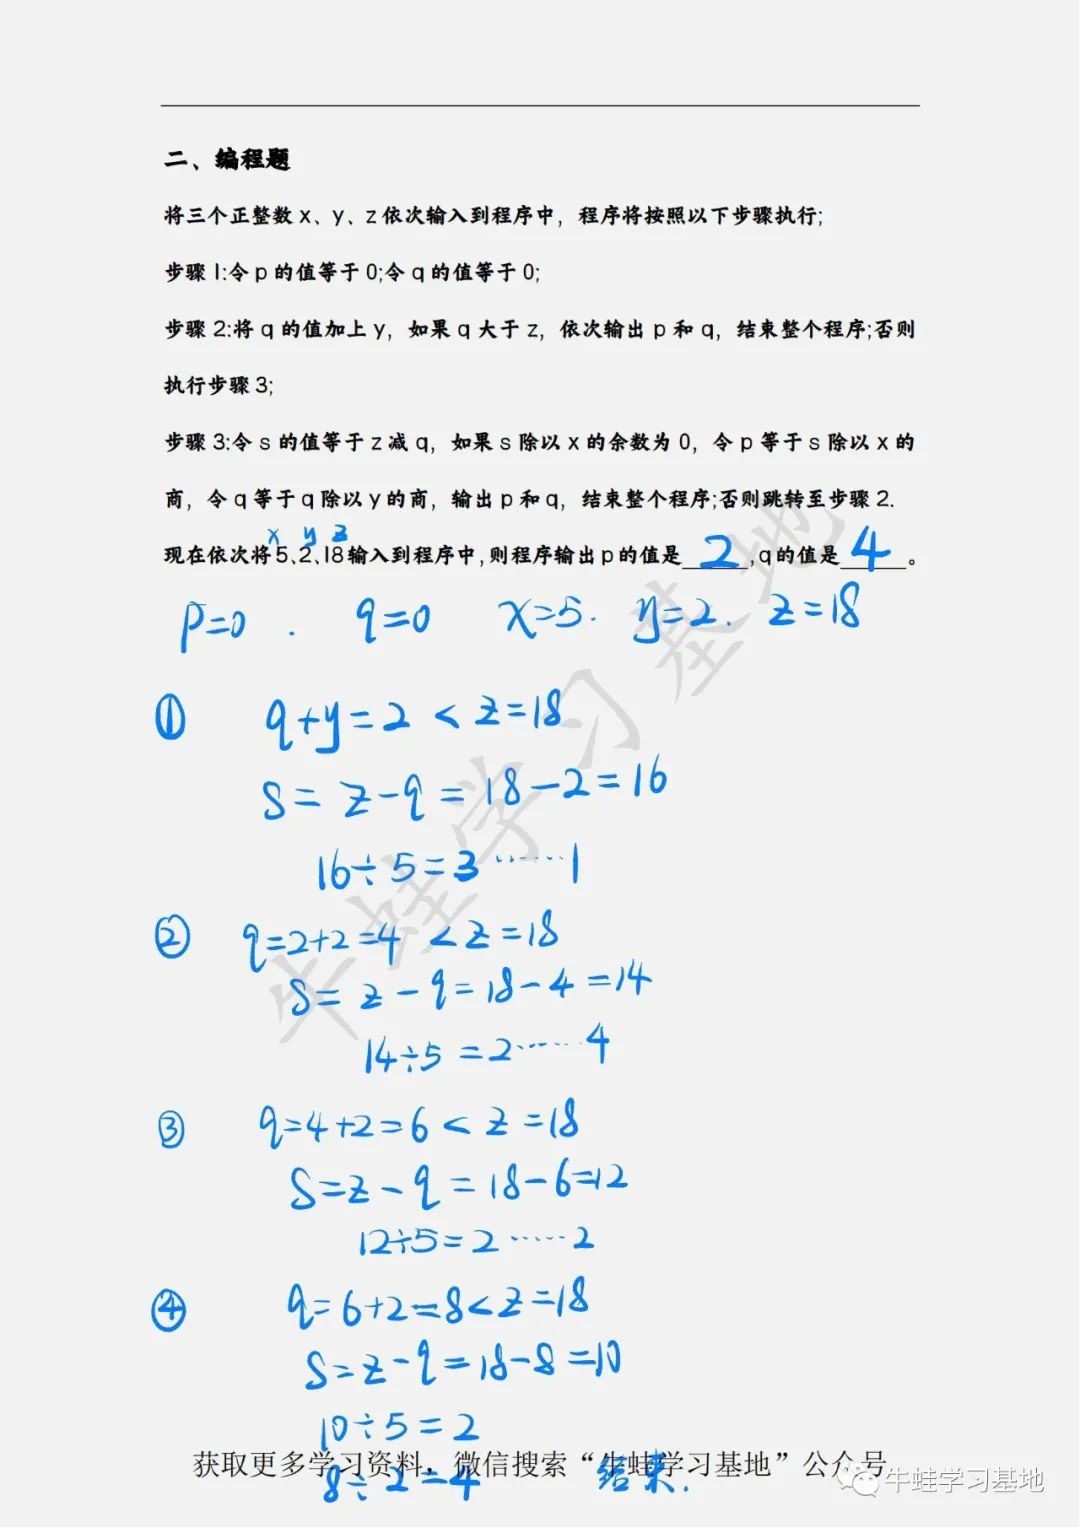 二、编程题
将三个正整数 x、y、z 依次输入到程序中，程序将按照以下步骤执行;
步骤 1:令 p 的值等于 0;令 q 的值等于 0;
步骤 2:将 q 的值加上 y，如果 q 大于 z，依次输出 p 和 q，结束整个程序;否则
执行步骤 3;
步骤 3:令 s 的值等于 z 减 q，如果 s 除以 x 的余数为 0，令 p 等于 s 除以 x 的
商，令 q 等于 q 除以 y 的商，输出 p 和 q，结束整个程序;否则跳转至步骤 2.
x y z
现在依次将 5、2、18 输入到程序中,则程序输出 p 的值是 2 ,q 的值是 4 。
p=0 . q=0 x=5. y=2. z=18
① q+y=2 < z=18
s= z-q = 18-2=16
16÷5=3……1
② q=2+2=4 < z=18
s= z-q=18-4=14
14÷5=2……4
③ q=4+2=6 < z=18
s=z-q=18-6=12
12÷5=2……2
④ q=6+2=8<z=18
s=z-q=18-8=10
10÷5=2
获取更多学习资料，微信搜索“牛蛙学习基地”公众号
8÷2=4 结束.
牛蛙学习基地
牛蛙学习基地